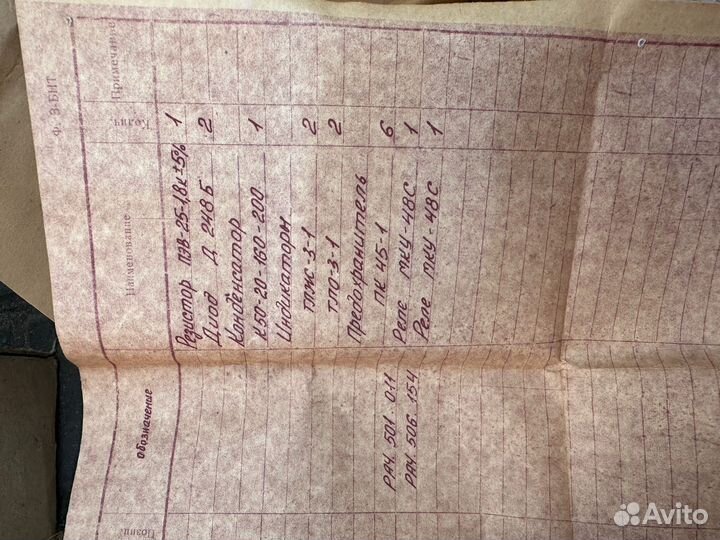 Ф. 3-БНТ
Позиц. Обозначение Наименование Колич. Примечание
Резистор ПЭВ-25-1,8к ±5% 1
Диод Д 248 Б 2
Конденсатор
К50-20-160-200 1
Индикаторы
ТЛЖ-3-1 2
ТЛО-3-1 2
Предохранитель
ПК 45-1 6
РА4. 501. 011 Реле МКУ-48С 1
РА4. 506. 154 Реле МКУ-48С 1
Avito